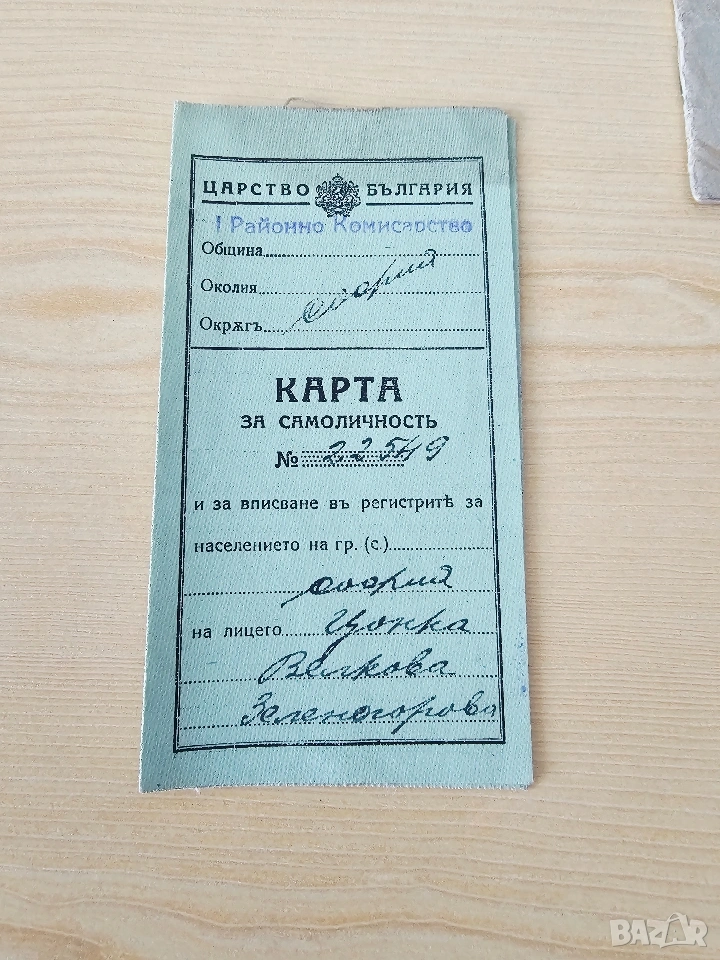 ЦАРСТВО БЪЛГАРИЯ
I Районно Комисарство
Община
Околия София
Окрѫгъ
КАРТА
ЗА САМОЛИЧНОСТЬ
№ 22549
и за вписване въ регистритѣ за
населението на гр. (с.)
София
на лицето Цонка
Велкова
Зеленогорова
BAZAR